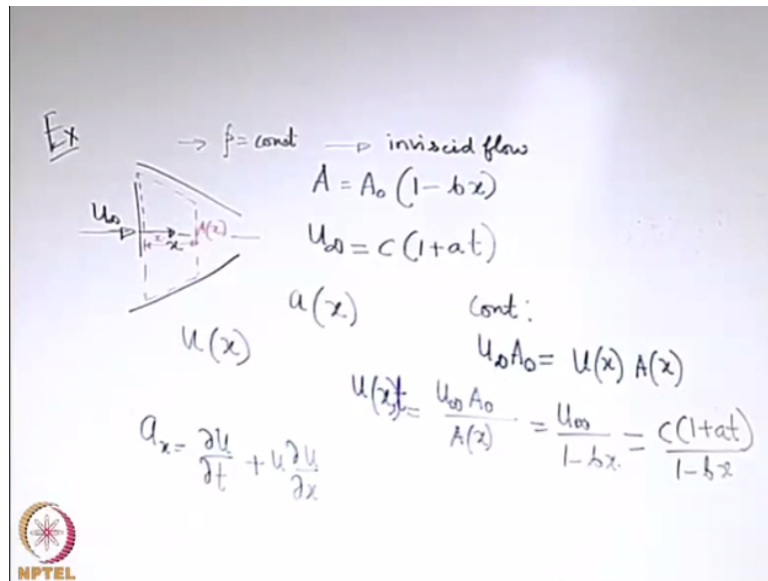 Ex
→ ρ = const → inviscid flow
A = A₀ (1 - bx)
U∞
x
x
U(x)
U∞ = c (1+at)
a(x)
u(x)
Cont:
U∞A₀ = U(x) A(x)
U(x,t = U∞ A₀ / A(x) = U∞ / 1-bx = c(1+at) / 1-bx
aₓ = ∂u/∂t + u ∂u/∂x
NPTEL